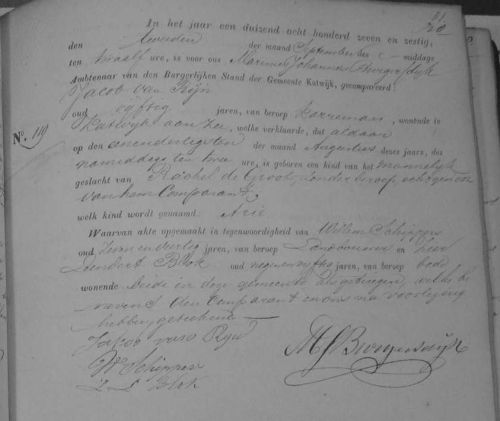 In het jaar een duizend acht honderd zeven en zestig,
den tweeden der maand September des middags
ten twaalf ure, is voor ons
Ambtenaar van den Burgerlijken Stand der Gemeente Katwijk, gecompareerd:
Jacob van Rijn
oud vijftig jaren, van beroep wonende te
Katwijk aan Zee, welke verklaarde, dat aldaar
No. 119
op den een en dertigsten der maand Augustus dezes jaars, des
namiddags ten twee ure, is geboren een kind van het mannelijk
geslacht van Rachel de Groot, zonder beroep, echtgenoot
van hem Comparant
welk kind wordt genaamd Arie
Waarvan akte opgemaakt in tegenwoordigheid van Willem Schippers
oud jaren, van beroep en van
Leendert Blok oud jaren, van beroep
wonende Beide in deze gemeente als getuigen, welke be
nevens den Comparant en ons na voorlezing
hebben geteekend
Jacob van Rijn
W Schippers
L Blok